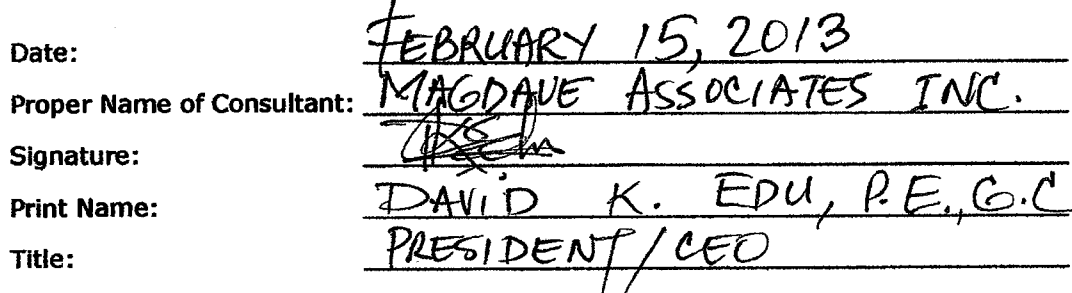 Date: FEBRUARY 15, 2013
Proper Name of Consultant: MAGDAVE ASSOCIATES INC.
Signature:
Print Name: DAVID K. EDU, P.E., G.C
Title: PRESIDENT/CEO